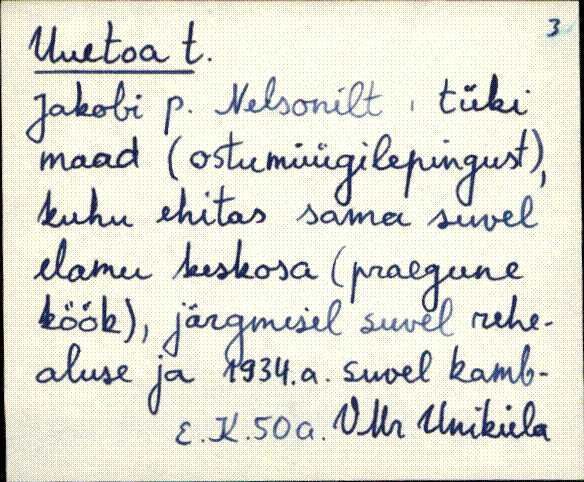 3
Uuetoa t.
Jakobi p. Nelsonilt, tüki
maad (ostumüügilepingust),
kuhu ehitas sama suvel
elamu keskosa (praegune
köök), järgmisel suvel rehe-
aluse ja 1934.a. suvel kamb-
E.K.50a. VMr Uniküla